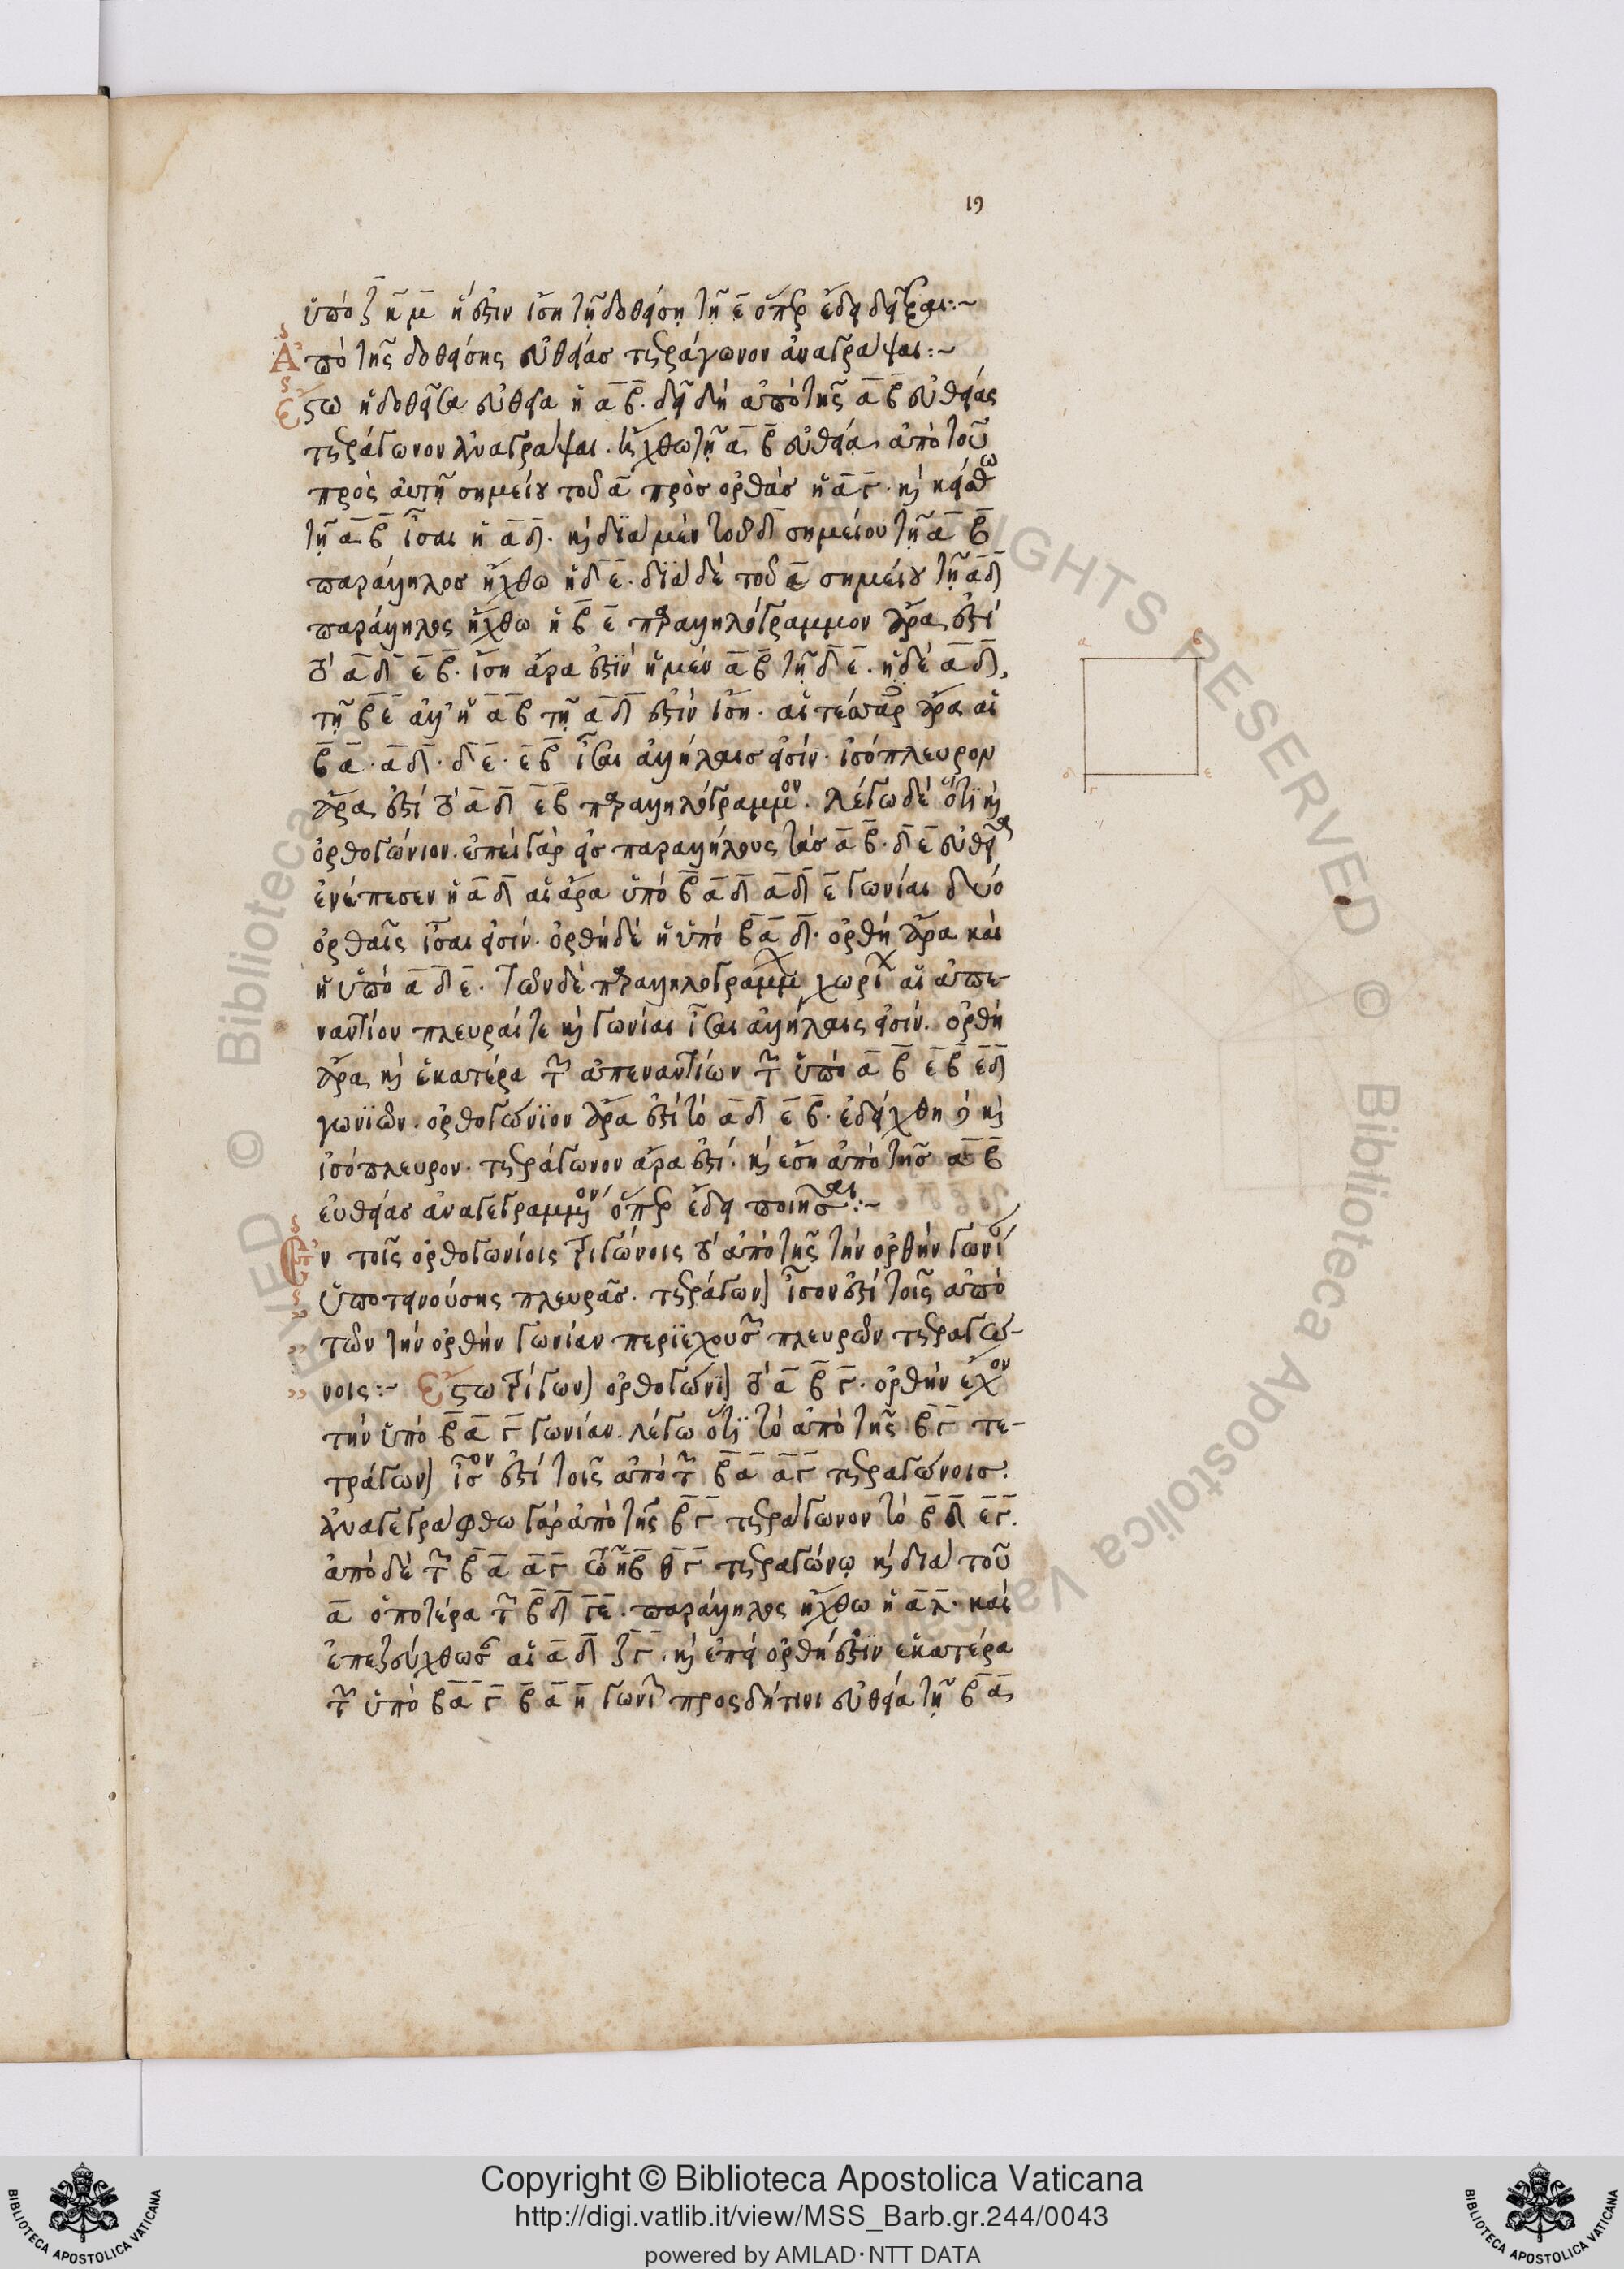 19
ὑπὸ ζ η μ ἥ ἐστιν ἴση τῇ δοθείσῃ τῇ ε ὅπερ ἔδει δεῖξαι:~
Ἀπὸ τῆς δοθείσης εὐθείας τετράγωνον ἀναγράψαι:~
Ἔστω ἡ δοθεῖσα εὐθεῖα ἡ α β. δεῖ δὴ ἀπὸ τῆς α β εὐθείας
τετράγωνον ἀναγράψαι. ἤχθω τῇ α β εὐθείᾳ ἀπὸ τοῦ
πρὸς αὐτῇ σημείου τοῦ α πρὸς ὀρθὰς ἡ α γ. καὶ κείσθω
τῇ α β ἴσαι ἡ α δ. καὶ διὰ μὲν τοῦ δ σημείου τῇ α β
παράλληλος ἤχθω ἡ δ ε. διὰ δὲ τοῦ α σημείου τῇ α δ
παράλληλος ἤχθω ἡ β ε παραλληλόγραμμον ἄρα ἐστὶ
τὸ α δ ε β. ἴση ἄρα ἐστὶν ἡ μὲν α β τῇ δ ε. ἡ δὲ α δ,
τῇ β ε ἀλλ' ἡ α β τῇ α δ ἐστὶν ἴση. αἱ τέσσαρες ἄρα αἱ
β α. α δ. δ ε. ε β ἴσαι ἀλλήλαις εἰσίν. ἰσόπλευρον
ἄρα ἐστὶ τὸ α δ ε β παραλληλόγραμμον. λέγω δὲ ὅτι καὶ
ὀρθογώνιον. ἐπεὶ γὰρ εἰς παραλλήλους τὰς α β. δ ε εὐθείας
ἐνέπεσεν ἡ α δ αἱ ἄρα ὑπὸ β α δ α δ ε γωνίαι δυὸ
ὀρθαῖς ἴσαι εἰσίν. ὀρθὴ δὲ ἡ ὑπὸ β α δ. ὀρθὴ ἄρα καὶ
ἡ ὑπὸ α δ ε. τῶν δὲ παραλληλογράμμων χωρίων αἱ ἀπε-
ναντίον πλευραί τε καὶ γωνίαι ἴσαι ἀλλήλαις εἰσίν. ὀρθὴ
ἄρα καὶ ἑκατέρα τῶν ἀπεναντίων τῶν ὑπὸ α β ε β ε δ
γωνιῶν. ὀρθογώνιον ἄρα ἐστὶ τὸ α δ ε β. ἐδείχθη δὲ καὶ
ἰσόπλευρον. τετράγωνον ἄρα ἐστί. καὶ ἔστι ἀπὸ τῆς α β
εὐθείας ἀναγεγραμμένον ὅπερ ἔδει ποιῆσαι:~
Ἐν τοῖς ὀρθογωνίοις τριγώνοις τὸ ἀπὸ τῆς τὴν ὀρθὴν γωνίαν
ὑποτεινούσης πλευρᾶς. τετράγωνον ἴσον ἐστὶ τοῖς ἀπὸ
τῶν τὴν ὀρθὴν γωνίαν περιεχουσῶν πλευρῶν τετραγώ-
νοις:~ Ἔστω τρίγωνον ὀρθογώνιον τὸ α β γ. ὀρθὴν ἔχον
τὴν ὑπὸ β α γ γωνίαν. λέγω ὅτι τὸ ἀπὸ τῆς β γ τε-
τράγωνον ἴσον ἐστὶ τοῖς ἀπὸ τῶν β α α γ τετραγώνοις.
ἀναγεγράφθω γὰρ ἀπὸ τῆς β γ τετράγωνον τὸ β δ ε γ.
ἀπὸ δὲ τῶν β α α γ τὰ η β θ γ τετραγώνῳ καὶ διὰ τοῦ
α ὁποτέρα τῶν β δ γ ε. παράλληλος ἤχθω ἡ α λ. καὶ
ἐπεζεύχθωσαν αἱ α δ ζ γ. καὶ ἐπεὶ ὀρθή ἐστιν ἑκατέρα
τῶν ὑπὸ β α γ β α η γωνιῶν πρὸς δή τινι εὐθείᾳ τῇ β α
α
β
δ
γ
ε
Copyright © Biblioteca Apostolica Vaticana
http://digi.vatlib.it/view/MSS_Barb.gr.244/0043
powered by AMLAD·NTT DATA
BIBLIOTECA APOSTOLICA VATICANA
BIBLIOTECA APOSTOLICA VATICANA